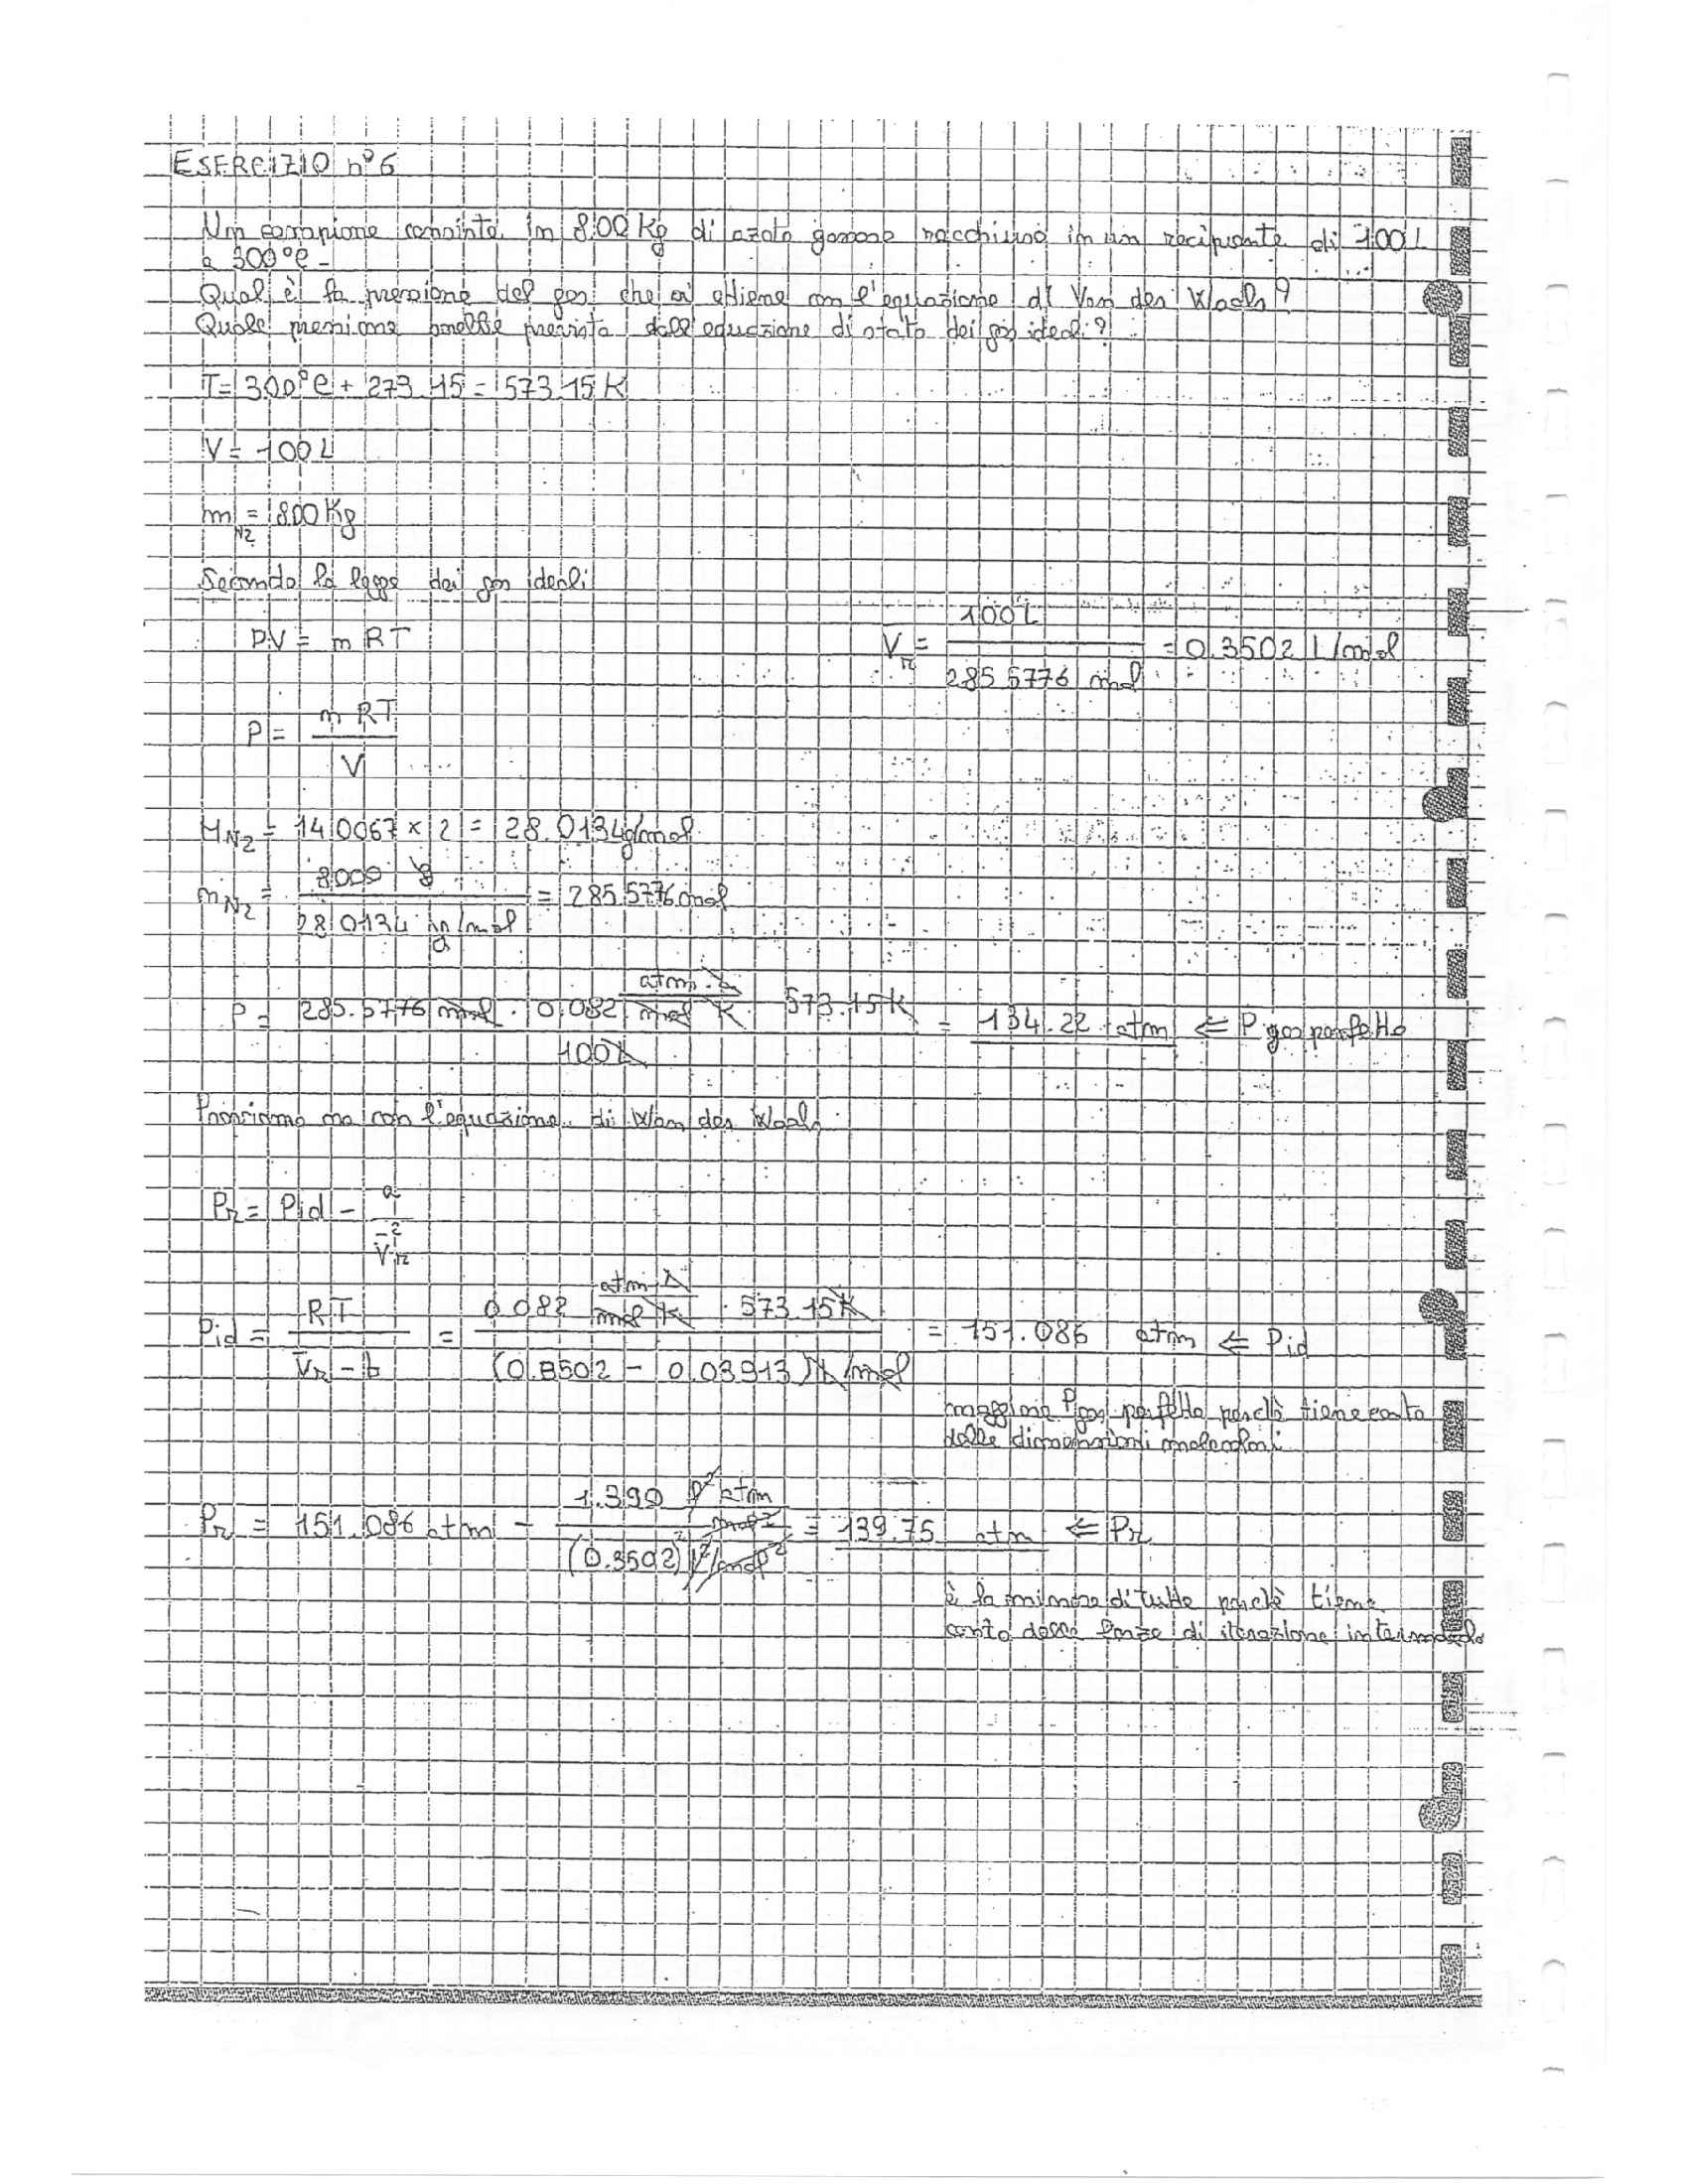 ESERCIZIO n°6
Un campione consiste in 8.00 Kg di azoto gassoso racchiuso in un recipiente di 100 L
a 300°C -
Qual è la pressione del gas che si ottiene con l'equazione di Van der Waals?
Quale pressione sarebbe prevista dall'equazione di stato dei gas ideali?
T = 300°C + 273.15 = 573.15 K
V = 100 L
m N2 = 8.00 Kg
Secondo la legge dei gas ideali
PV = nRT
V̄r = 100 L / 285.5776 mol = 0.3502 L/mol
P = nRT / V
M N2 = 14.0067 × 2 = 28.0134 g/mol
n N2 = 8000 g / 28.0134 g/mol = 285.5776 mol
P = 285.5776 mol · 0.082 atm·L / mol K · 573.15 K / 100 L = 134.22 atm ⇐ P gas perfetto
Proviamo ora con l'equazione di Wan der Waals
Pr = Pid - a / V̄r²
Pid = RT / V̄r - b = 0.082 atm·L / mol K · 573.15 K / (0.3502 - 0.03913) L/mol = 151.086 atm ⇐ Pid
maggiore P gas perfetto perchè tiene conto
delle dimensioni molecolari
Pr = 151.086 atm - 1.390 l² atm / mol² / (0.3502)² l²/mol² = 139.75 atm ⇐ Pr
è la minore di tutte perchè tiene
conto delle forze di iterazione